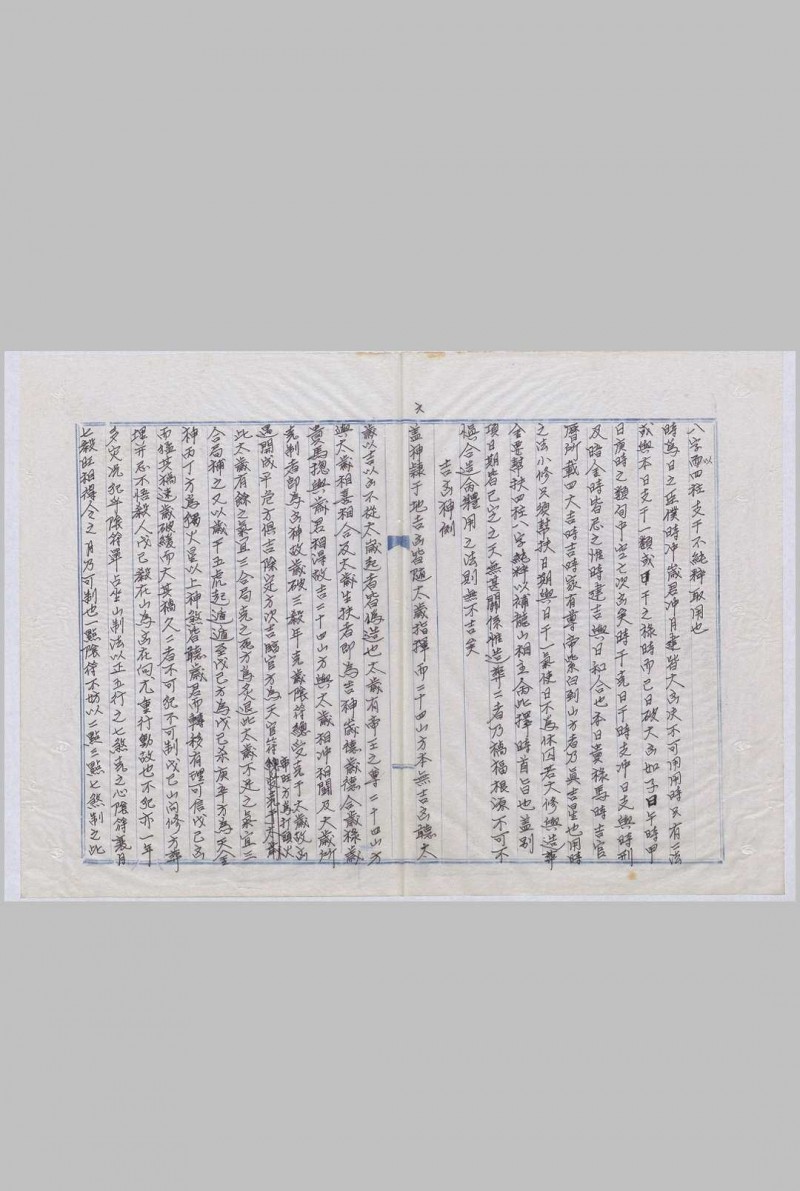 八字而以四柱支干不純粹取用也
時為日之臣僕時冲歲君冲月建皆大凶决不可用用時只有二法
或與本日支干一類或日干之祿時而已日破大凶如子日午時甲
日庚時之類旬中空亡次凶矣時干克日干時支冲日支與時刑
及路金時皆忌之惟時建吉與日和合也本日貴祿馬時吉官
曆所載四大吉時吉時家有尊帝紫白到山方者乃眞吉星也用時
之法小修只須幫扶日期與日干一氣使日不為休囚若大修與造葬
全要幫扶四柱八字純粹以補龍山相主命此擇時首旨也盖別
項日期皆已定之天無甚關係惟造葬二者乃禍福根源不可不
慎合造命體用之法則無不吉矣
吉凶神例
盖神隸于地吉凶皆隨太歲指揮而二十四山方本無吉凶聽太
歲以吉以凶不從太歲起者皆偽造也太歲有帝王之尊二十四山方
與太歲相喜相合及太歲生扶者即為吉神歲德歲德合歲祿歲
貴馬揔與歲君相得故吉二十四山方與太歲相冲相閗及太歲所
克制者即為凶神故歲破三殺年克歲陰符揔受克于太歲故凶
遇開成平危方俱吉除定方次吉臨官方為天官符帝旺方為打頭火揔是克于太歲
此太歲有餘之氣且三合局克之死方為炙退此太歲不進之氣宜三
合局補之又以歲干五虎起遁遁至戊己方為戊己杀庚辛方為天金
神丙丁方為獨火星以上神煞皆聽歲君而轉移有理可信戊己凶
而値其禍速歲破緩而大其禍久二者不可犯不可制戊己山向修方葬
埋并忌不惜殺人戊己殺在山為凶在向尤重行動故也不死亦一年
多灾況犯年陰符單占坐山制法以正五行之七煞克之心陰符衰月
七殺旺相得令之月乃可制也一點陰符不妨以二點三點七煞制之此